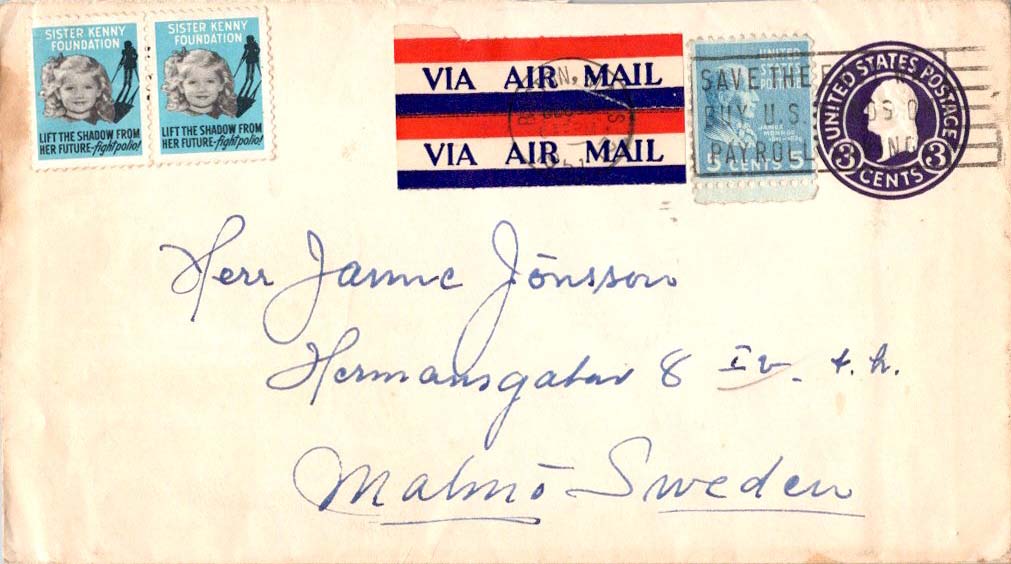 SISTER KENNY
FOUNDATION
LIFT THE SHADOW FROM
HER FUTURE-fight polio!
SISTER KENNY
FOUNDATION
LIFT THE SHADOW FROM
HER FUTURE-fight polio!
VIA AIR MAIL
VIA AIR MAIL
UNITED
STATES
POSTAGE
JAMES
MONROE
5 CENTS 5
SAVE THE
BUY U.S.
PAYROLL
UNITED STATES POSTAGE
3 CENTS 3
Herr Janne Jönsson
Hermansgatan 8 IV. t.h.
Malmö Sweden